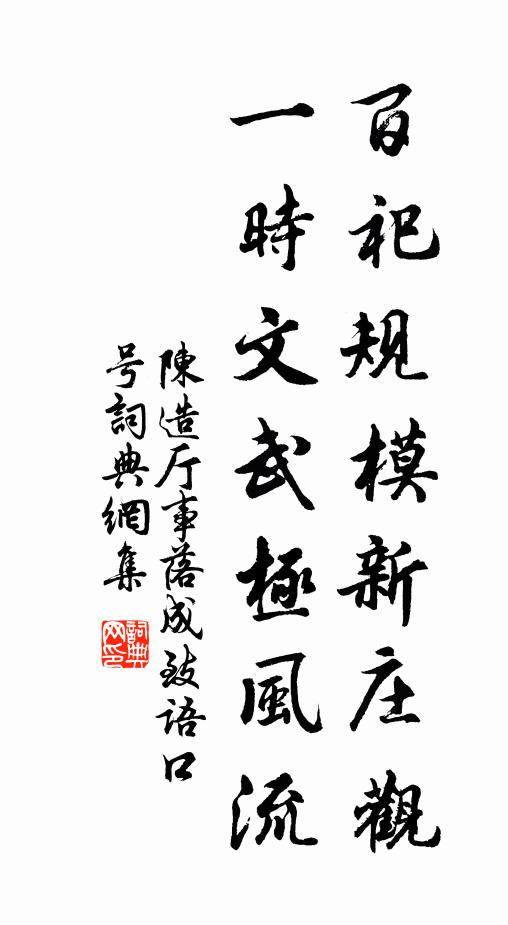 百祀规模新庄觀
一時文武極風流
陳造厅事落成致语口
号詞典網集
詞典网印